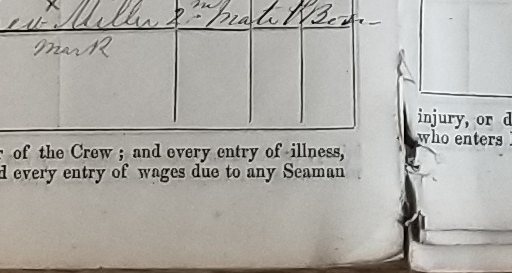 x
Miller 2nd Mate
mark
of the Crew ; and every entry of illness,
every entry of wages due to any Seaman
injury, or
who enters